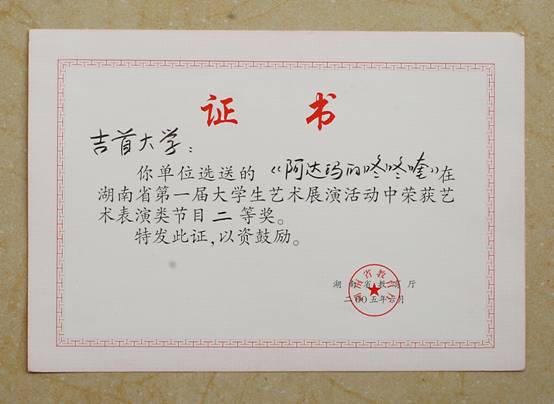 证书
吉首大学：
你单位选送的《阿达玛的咚咚喹》在
湖南省第一届大学生艺术展演活动中荣获艺
术表演类节目二等奖。
特发此证，以资鼓励。
湖南省教育厅
二00五年六月